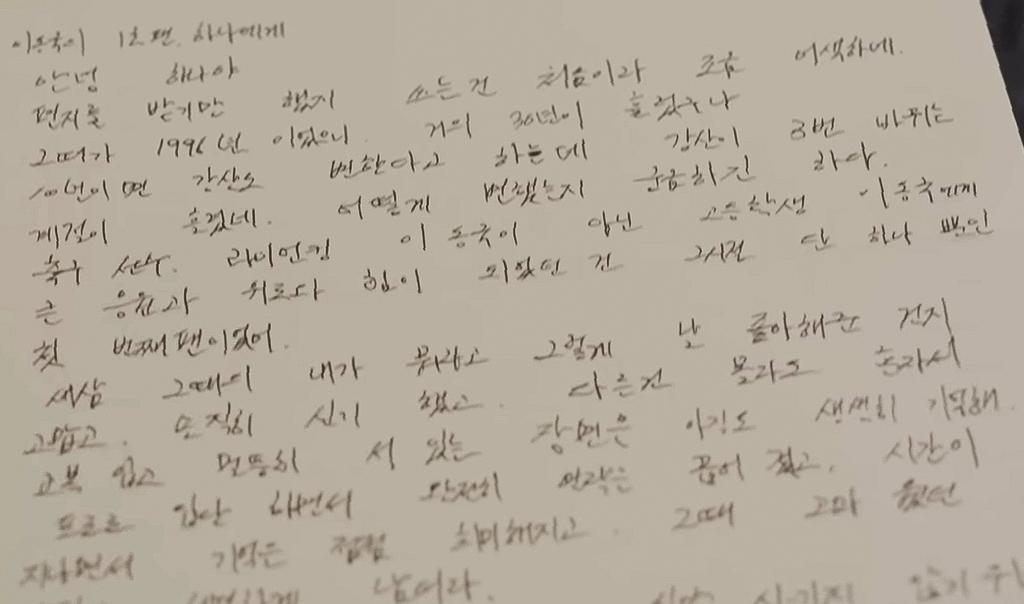 이동국의 1호팬. 하나에게
안녕 하나야
편지를 받기만 했지 쓰는건 처음이라 조금 어색하네.
그때가 1996년 이었으니. 거의 30년이 흘렀구나
10년이면 강산도 변한다고 하는데 강산이 3번 바뀌는
계절이 흘렀네. 어떻게 변했는지 궁금하긴 하다.
축구 선수. 라이언킹 이동국이 아닌 고등학생 이동국에게
큰 응원과 위로와 힘이 되었던 건 그시절 단 하나 뿐인
첫 번째팬이었어.
새삼 그때의 내가 뭐라고 그렇게 날 좋아해준 건지
고맙고. 솔직히 신기 했고. 다른건 몰라도 혼자서
교복 입고 멀뚱히 서 있는 장면은 아직도 생생히 기억해.
프로로 입단 하면서 완전히 연락은 끊어 졌고. 시간이
지나면서 기억은 점점 희미해지고. 그때 고마 웠던
남더라.